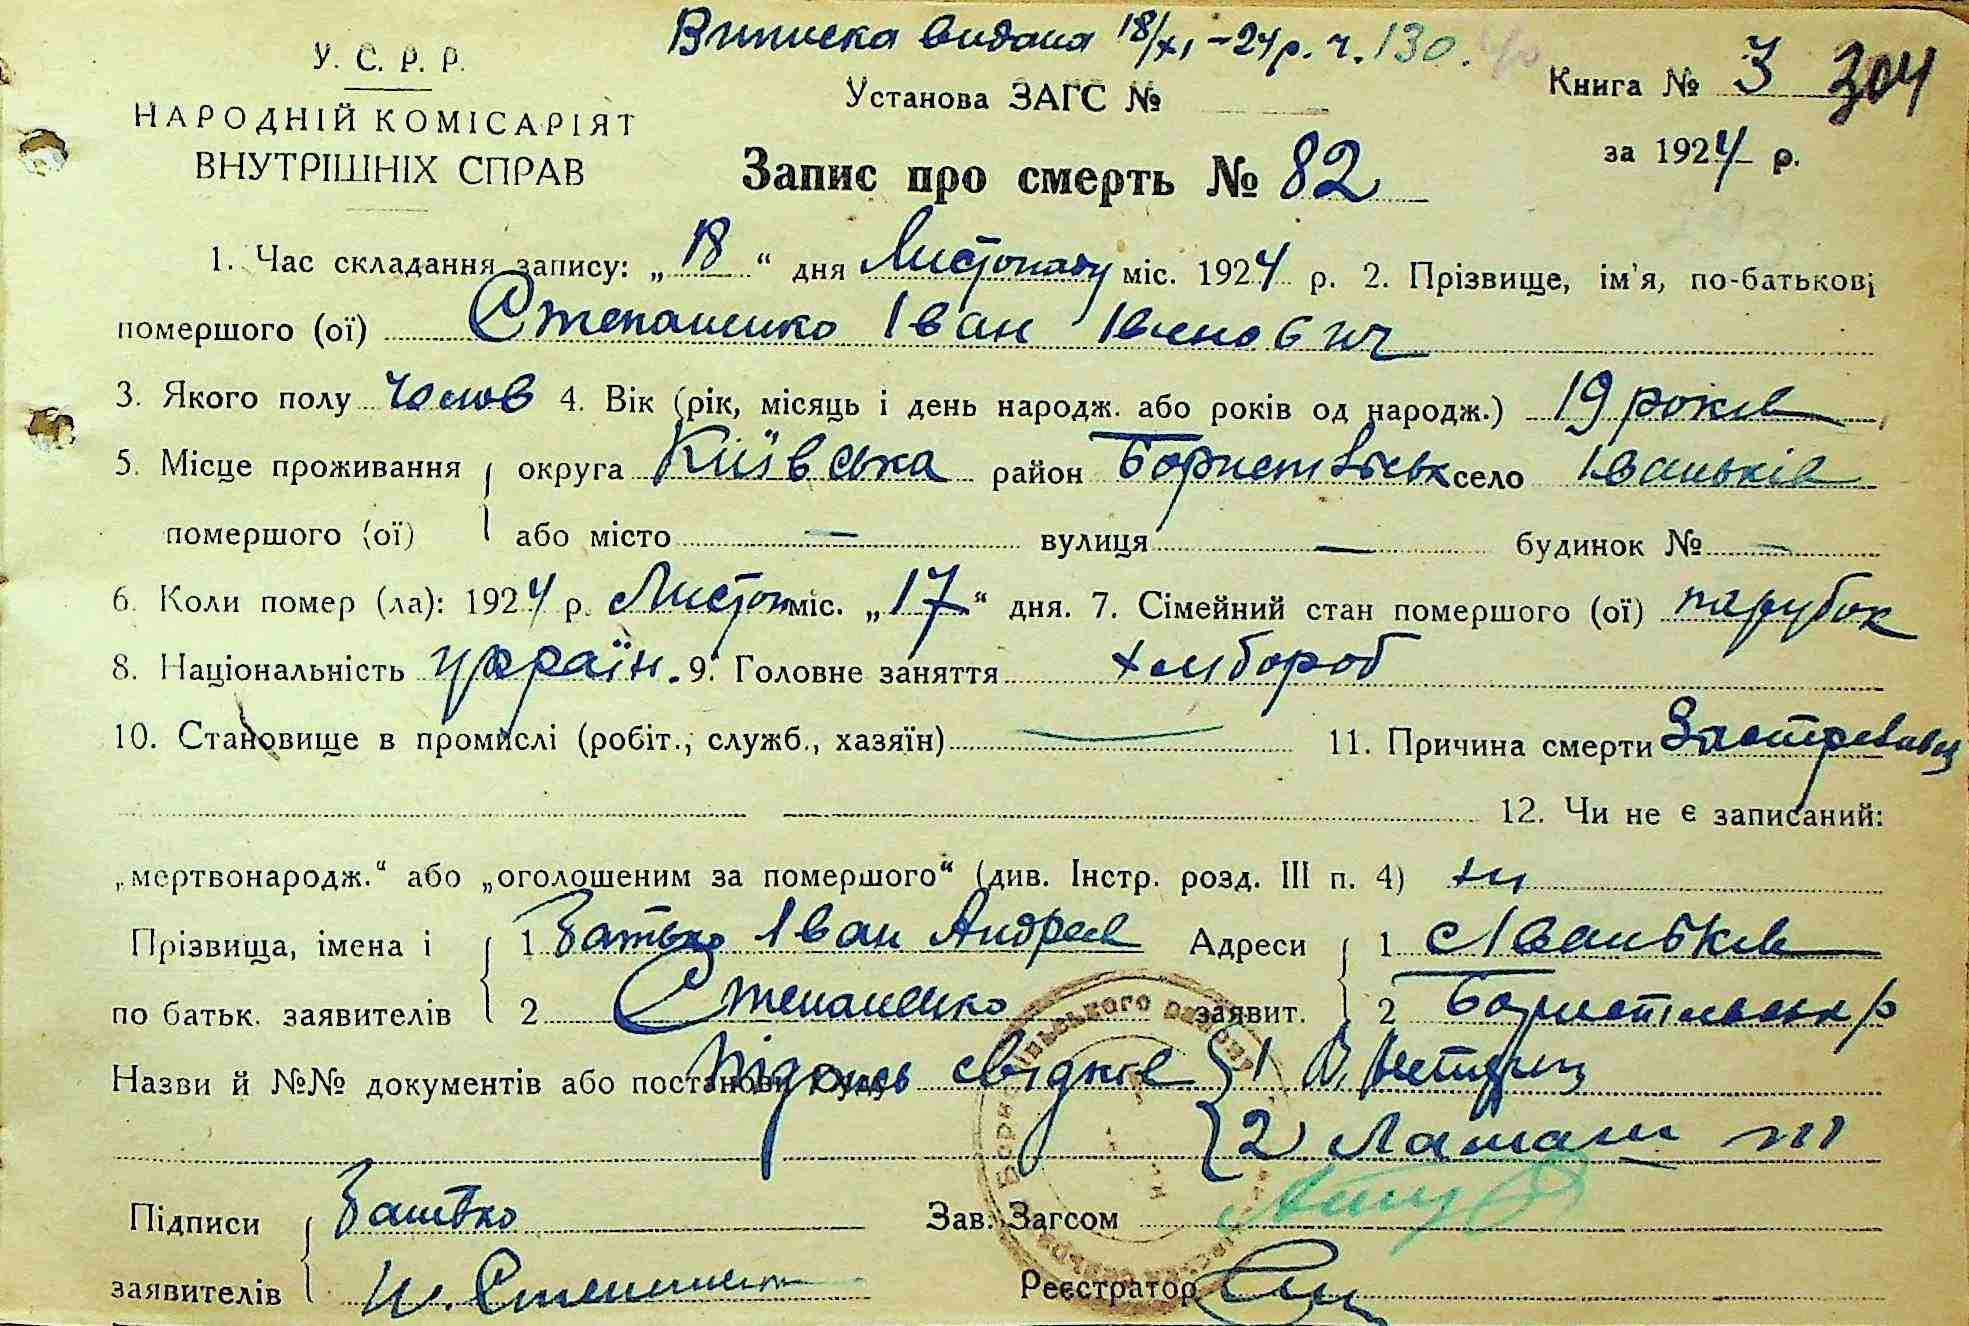 Виписка видана 18/XI-24р. ч. 130.
У. С. Р. Р.
НАРОДНІЙ КОМІСАРІЯТ
ВНУТРІШНІХ СПРАВ
Установа ЗАГС №
Книга № 3 304
за 1924 р.
Запис про смерть № 82
1. Час складання запису: „18“ дня Листопаду міс. 1924 р. 2. Прізвище, ім'я, по-батькові
помершого (ої) Степаненко Іван Іванович
3. Якого полу чолов 4. Вік (рік, місяць і день народж. або років од народж.) 19 років
5. Місце проживання округа Київська район Бориспільськ село Іваньків
помершого (ої) або місто — вулиця — будинок № —
6. Коли помер (ла): 1924 р. Листоп міс. „17“ дня. 7. Сімейний стан помершого (ої) парубок
8. Національність україн. 9. Головне заняття хлібороб
10. Становище в промислі (робіт., служб., хазяїн) — 11. Причина смерти Застреливсь
12. Чи не є записаний:
„мертвонародж.“ або „оголошеним за помершого“ (див. Інстр. розд. III п. 4) ні
Прізвища, імена і 1 Затько Іван Андреев Адреси 1 с Іваньків
по батьк. заявителів 2 Степаненко заявит. 2 Бориспільськ р
Назви й №№ документів або постанови суду Підпись свідків 1
2
Підписи Затько Зав. Загсом
заявителів Реєстратор